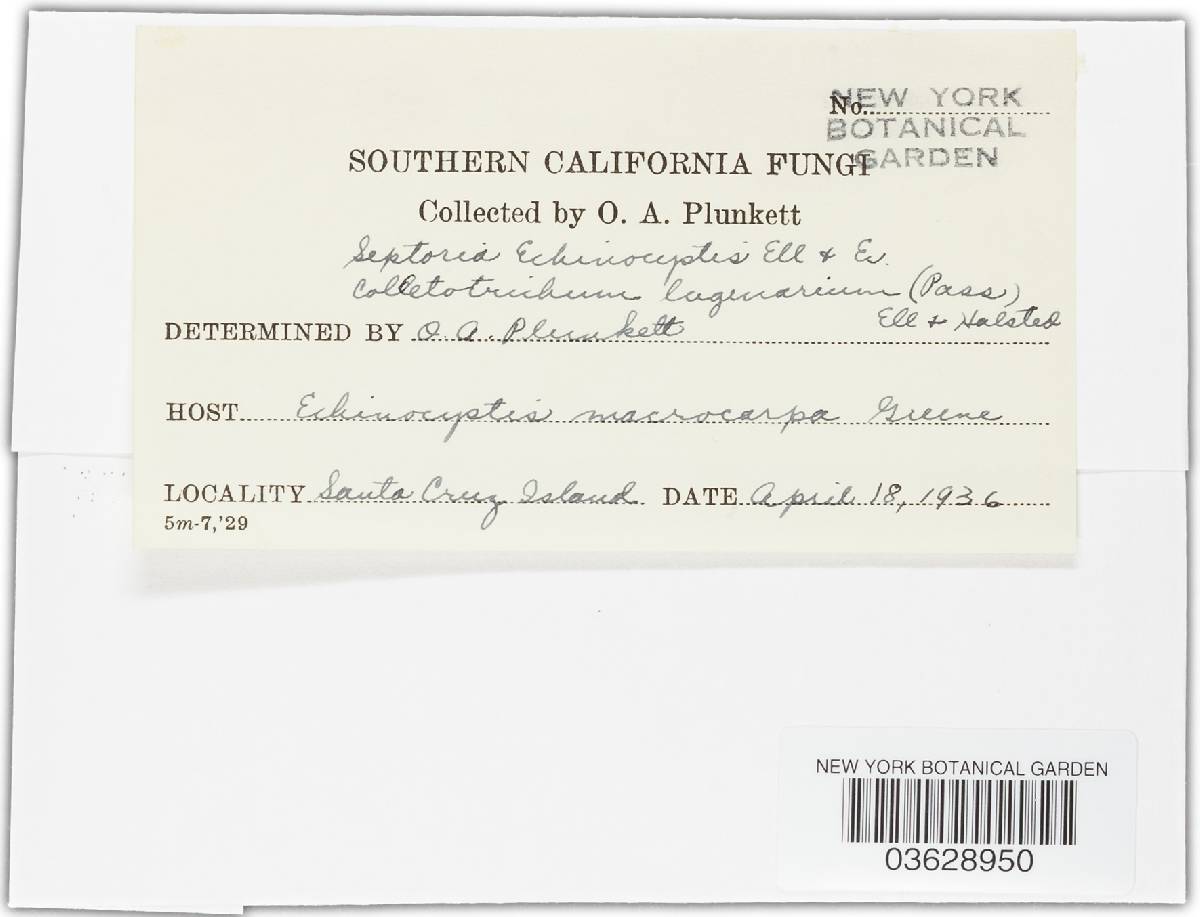 No.
NEW YORK
BOTANICAL
GARDEN
SOUTHERN CALIFORNIA FUNGI
Collected by O. A. Plunkett
Septoria Echinocystis Ell & Ev.
Colletotrichum lagenarium (Pass)
Ell & Halsted
DETERMINED BY O. A. Plunkett
HOST Echinocystis macrocarpa Greene
LOCALITY Santa Cruz Island DATE April 18, 1936
5m-7,'29
NEW YORK BOTANICAL GARDEN
03628950